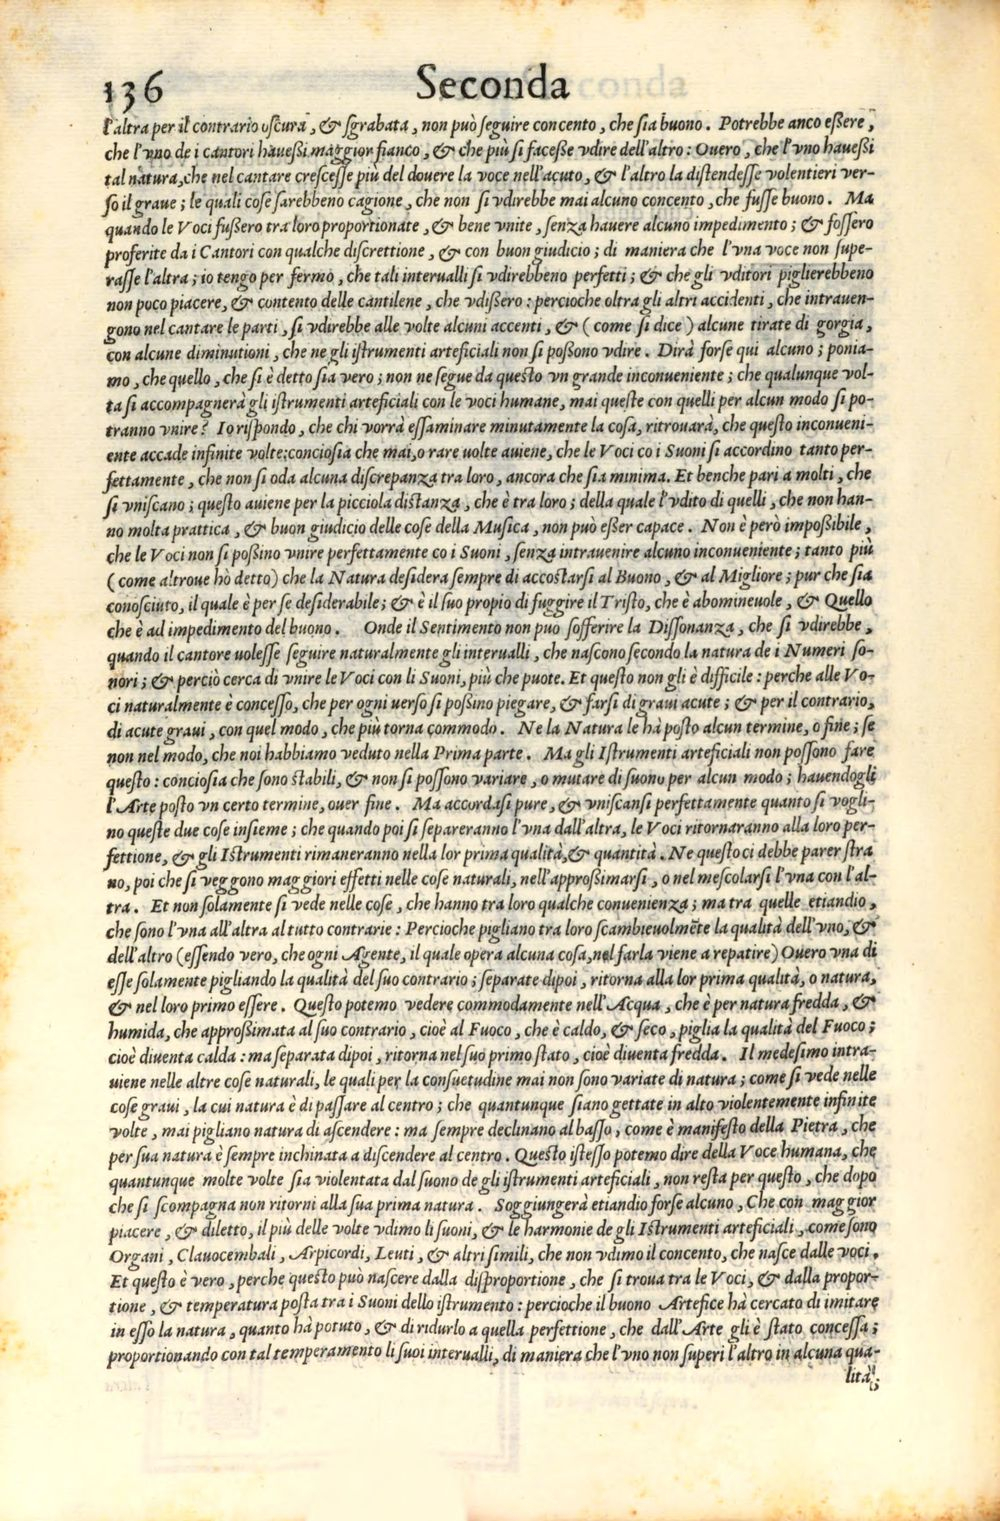 136 Seconda
l'altra per il contrario oscura, & sgrabata, non può seguire concento, che sia buono. Potrebbe anco eßere,
che l'vno de i cantori haueßi maggior fianco, & che più si faceße vdire dell'altro: Ouero, che l'vno haueßi
tal natura, che nel cantare crescesse più del douere la voce nell'acuto, & l'altro la distendesse volentieri ver-
so il graue; le quali cose sarebbeno cagione, che non si vdirebbe mai alcuno concento, che fusse buono. Ma
quando le Voci fußero tra loro proportionate, & bene vnite, senza hauere alcuno impedimento; & fossero
proferite da i Cantori con qualche discrettione, & con buon giudicio; di maniera che l'vna voce non supe-
rasse l'altra; io tengo per fermo, che tali interualli si vdirebbeno perfetti; & che gli vditori piglierebbeno
non poco piacere, & contento delle cantilene, che vdißero: percioche oltra gli altri accidenti, che intrauen-
gono nel cantare le parti, si vdirebbe alle volte alcuni accenti, & (come si dice) alcune tirate di gorgia,
con alcune diminutioni, che ne gli istrumenti arteficiali non si poßono vdire. Dirà forse qui alcuno; ponia-
mo, che quello, che si è detto sia vero; non ne segue da questo vn grande inconueniente; che qualunque vol-
ta si accompagnerà gli istrumenti arteficiali con le voci humane, mai queste con quelli per alcun modo si po-
tranno vnire? Io rispondo, che chi vorrà essaminare minutamente la cosa, ritrouarà, che questo inconueni-
ente accade infinite volte: conciosia che mai, o rare uolte auiene, che le Voci co i Suoni si accordino tanto per-
fettamente, che non si oda alcuna discrepanza tra loro, ancora che sia minima. Et benche pari a molti, che
si vniscano; questo auiene per la picciola distanza, che è tra loro; della quale l'vdito di quelli, che non han-
no molta prattica, & buon giudicio delle cose della Musica, non può eßer capace. Non è però impoßibile,
che le Voci non si poßino vnire perfettamente co i Suoni, senza intrauenire alcuno inconueniente; tanto più
(come altroue hò detto) che la Natura desidera sempre di accostarsi al Buono, & al Migliore; pur che sia
conosciuto, il quale è per se desiderabile; & è il suo propio di fuggire il Tristo, che è abomineuole, & Quello
che è ad impedimento del buono. Onde il Sentimento non puo sofferire la Dissonanza, che si vdirebbe,
quando il cantore uolesse seguire naturalmente gli interualli, che nascono secondo la natura de i Numeri so-
nori; & perciò cerca di vnire le Voci con li Suoni, più che puote. Et questo non gli è difficile: perche alle Vo-
ci naturalmente è concesso, che per ogni verso si poßino piegare, & farsi di graui acute; & per il contrario,
di acute graui, con quel modo, che più torna commodo. Ne la Natura le hà posto alcun termine, o fine; se
non nel modo, che noi habbiamo veduto nella Prima parte. Ma gli Istrumenti arteficiali non possono fare
questo: conciosia che sono stabili, & non si possono variare, o mutare di suono per alcun modo; hauendogli
l'Arte posto vn certo termine, ouer fine. Ma accordasi pure, & vniscansi perfettamente quanto si vogli-
no queste due cose insieme; che quando poi si separeranno l'vna dall'altra, le Voci ritornaranno alla loro per-
fettione, & gli Istrumenti rimaneranno nella lor prima qualità, & quantità. Ne questo ci debbe parer stra
no, poi che si veggono maggiori effetti nelle cose naturali, nell'approßimarsi, o nel mescolarsi l'vna con l'al-
tra. Et non solamente si vede nelle cose, che hanno tra loro qualche conuenienza; ma tra quelle etiandio,
che sono l'vna all'altra al tutto contrarie: Percioche pigliano tra loro scambieuolmẽte la qualità dell'vno, &
dell'altro (essendo vero, che ogni Agente, il quale opera alcuna cosa, nel farla viene a repatire) Ouero vna di
esse solamente pigliando la qualità del suo contrario; separate dipoi, ritorna alla lor prima qualità, o natura,
& nel loro primo essere. Questo potemo vedere commodamente nell'Acqua, che è per natura fredda, &
humida, che approßimata al suo contrario, cioè al Fuoco, che è caldo, & seco, piglia la qualità del Fuoco;
cioè diuenta calda: ma separata dipoi, ritorna nel suo primo stato, cioè diuenta fredda. Il medesimo intra-
uiene nelle altre cose naturali, le quali per la consuetudine mai non sono variate di natura; come si vede nelle
cose graui, la cui natura è di passare al centro; che quantunque siano gettate in alto violentemente infinite
volte, mai pigliano natura di ascendere: ma sempre declinano al basso, come è manifesto della Pietra, che
per sua natura è sempre inchinata a discendere al centro. Questo istesso potemo dire della Voce humana, che
quantunque molte volte sia violentata dal suono de gli istrumenti arteficiali, non resta per questo, che dopo
che si scompagna non ritorni alla sua prima natura. Soggiungerà etiandio forse alcuno, Che con maggior
piacere, & diletto, il più delle volte vdimo li suoni, & le harmonie de gli Istrumenti arteficiali, come sono
Organi, Clauocembali, Arpicordi, Leuti, & altri simili, che non vdimo il concento, che nasce dalle voci.
Et questo è vero, perche questo può nascere dalla disproportione, che si troua tra le Voci, & dalla propor-
tione, & temperatura posta tra i Suoni dello istrumento: percioche il buono Artefice hà cercato di imitare
in esso la natura, quanto hà potuto, & di ridurlo a quella perfettione, che dall'Arte gli è stato concessa;
proportionando con tal temperamento li suoi interualli, di maniera che l'vno non superi l'altro in alcuna qua-
lità;